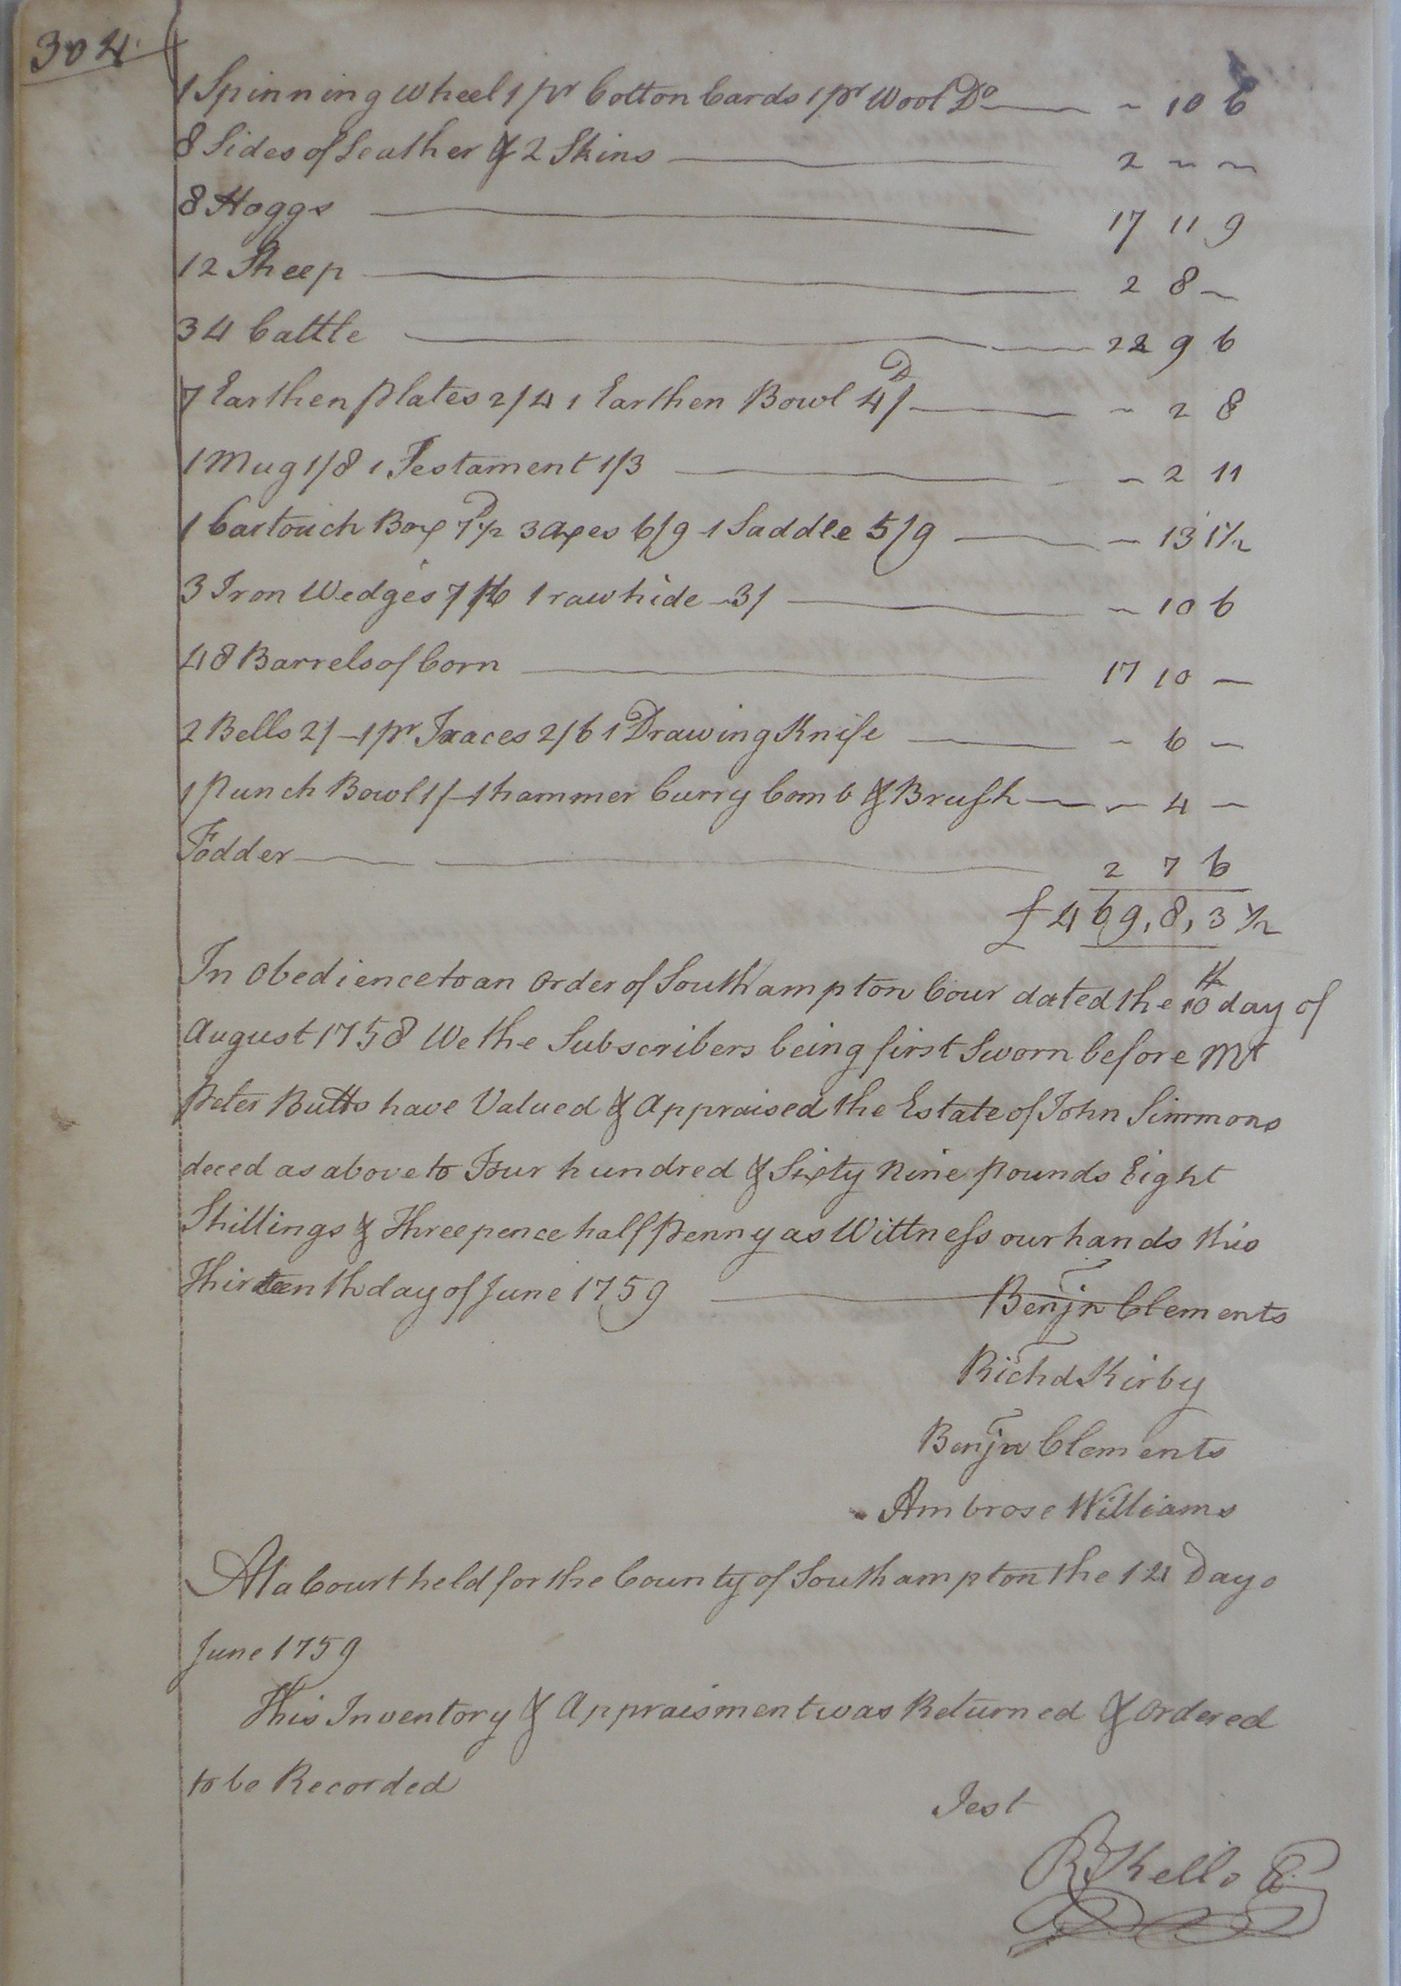 304
1 Spinning Wheel 1 pr Cotton Cards 1 pr Wool Do — ~ 10 6
8 Sides of Leather & 2 Skins — 2 ~ ~
8 Hoggs — 17 11 9
12 Sheep — 2 8 ~
34 Cattle — 22 9 6
7 Earthen plates 2/4 1 Earthen Bowl 4/D — ~ 2 8
1 Mug 1/8 1 Testament 1/3 — ~ 2 11
1 Cartouch Box 7D½ 3 axes 6/9 1 Saddle 5/9 — ~ 13 1½
3 Iron Wedges 7/6 1 rawhide 3/ — ~ 10 6
48 Barrels of Corn — 17 10 ~
2 Bells 2/ – 1 pr Traces 2/6 1 Drawing Knife — ~ 6 ~
1 Punch Bowl 1/– 1 hammer Curry Comb & Brush — ~ 4 ~
Fodder — 2 7 6
£469,8,3½
In Obedience to an Order of Southampton Cour dated the 10th day of
August 1758 We the Subscribers being first Sworn before Mr
Peter Butts have Valued & Appraised the Estate of John Simmons
deced as above to Four hundred & Sixty Nine pounds Eight
Shillings & Threepence half Penny as Wittness our hands this
Thirteenth day of June 1759 — Benjn Clements
Richd Kirby
Benjn Clements
Ambrose Williams
At a Court held for the County of Southampton the 14 Day o
June 1759
This Inventory & Appraisment was Returned & Ordered
to be Recorded
Test
R Kello